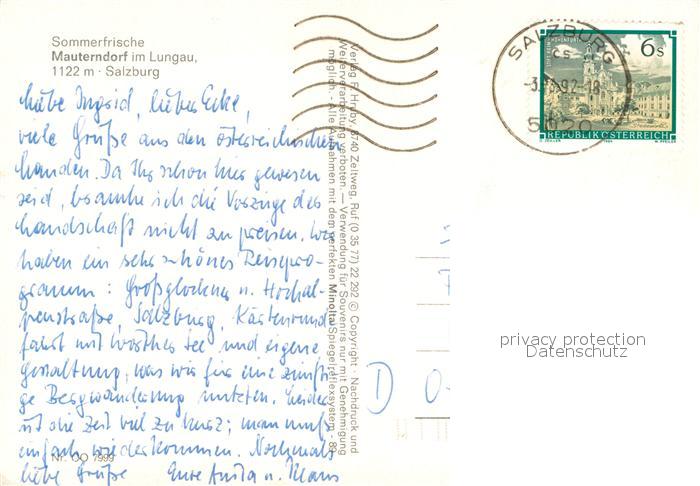 Sommerfrische
Mauterndorf im Lungau,
1122 m · Salzburg
Liebe Ingrid, lieber Ecke,
viele Grüße aus den österreichischen
Landen. Da Ihr schon hier gewesen
seid, brauche ich die Vorzüge der
Landschaft nicht zu preisen. Wir
haben ein sehr schönes Reisepro-
gramm: Großglockner u. Hochal-
penstraße, Salzburg, Kärntenrund
fahrt mit Wörther See und eigene
Gestaltung, was wir für eine zünfti-
ge Bergwanderung nutzten. Leider
ist die Zeit viel zu kurz; man muß
einfach wiederkommen. Nochmals
liebe Grüße Eure Anita u. Klaus
Nr. OO 7999
Verlag F. Hruby, 8740 Zeltweg, Ruf (0 35 77) 22 292 © Copyright · Nachdruck und
Weiterverarbeitung verboten. — Verwendung für Souvenirs nur mit Genehmigung
möglich · Alle Aufnahmen mit dem perfekten Minolta Spiegelreflexsystem - 89
SALZBURG
5020
6s
REPUBLIK ÖSTERREICH
D
privacy protection
Datenschutz